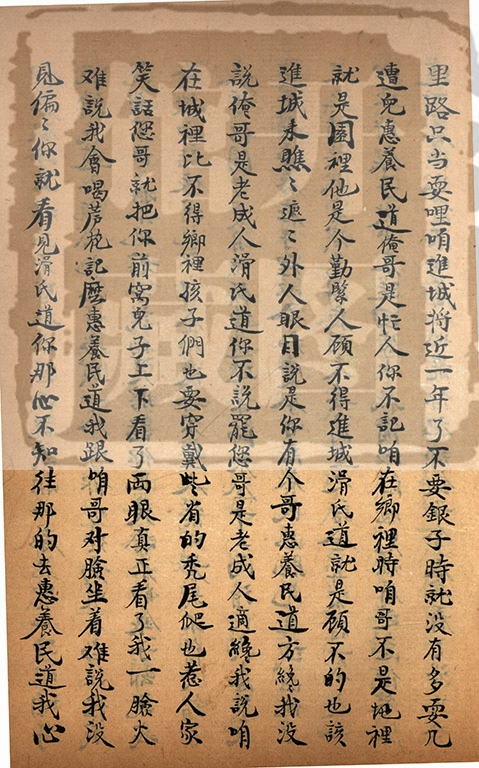 里路只当耍哩咱進城将近一年了不要銀子時就没有多耍几
遭兒惠養民道俺哥是忙人你不記咱在鄉裡時咱哥不是地裡
就是園裡他是个勤緊人顾不得進城滑氏道就是顾不的也該
進城来瞧〻遮〻外人眼目說是你有个哥惠養民道方纔我没
說俺哥是老成人滑氏道你不說罷您哥是老成人適纔我說咱
在城裡比不得鄉裡孩子們也要穿戴些省的秃尾爬也惹人家
笑話您哥就把你前窩兒子上下看了両眼真正看了我一臉火
难說我會喝芦花記麽惠養民道我跟咱哥对臉坐着难說我没
見偏〻你就看見滑氏道你那心不知往那的去惠養民道我心